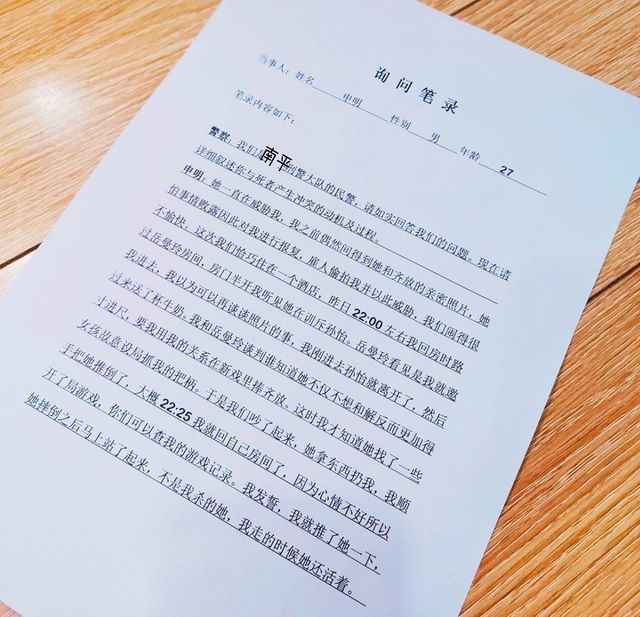 询问笔录
当事人：姓名 申明 性别 男 年龄 27
笔录内容如下：
警察：我们是南平刑警大队的民警，请如实回答我们的问题。现在请
详细叙述你与死者产生冲突的动机及过程。
申明：她一直在威胁我，我之前偶然间得到她和齐放的亲密照片，她
怕事情败露因此对我进行报复，雇人偷拍我并以此威胁，我们闹得很
不愉快。这次我们恰巧住在一个酒店，昨日22:00左右我回房时路
过岳曼玲房间，房门半开我听见她在训斥孙怡。岳曼玲看见是我就邀
我进去，我以为可以再谈谈照片的事，我刚进去孙怡就离开了，然后
过来送了杯牛奶。我和岳曼玲谈到谁知道她不仅不想和解反而更加得
寸进尺，要我用我的关系在新戏里捧齐放。这时我才知道她找了一些
女孩故意设局抓我的把柄。于是我们吵了起来，她拿东西扔我，我顺
手把她推倒了，大概22:25我就回自己房间了，因为心情不好所以
开了局游戏，你们可以查我的游戏记录。我发誓，我就推了她一下，
她摔倒之后马上站了起来，不是我杀的她，我走的时候她还活着。